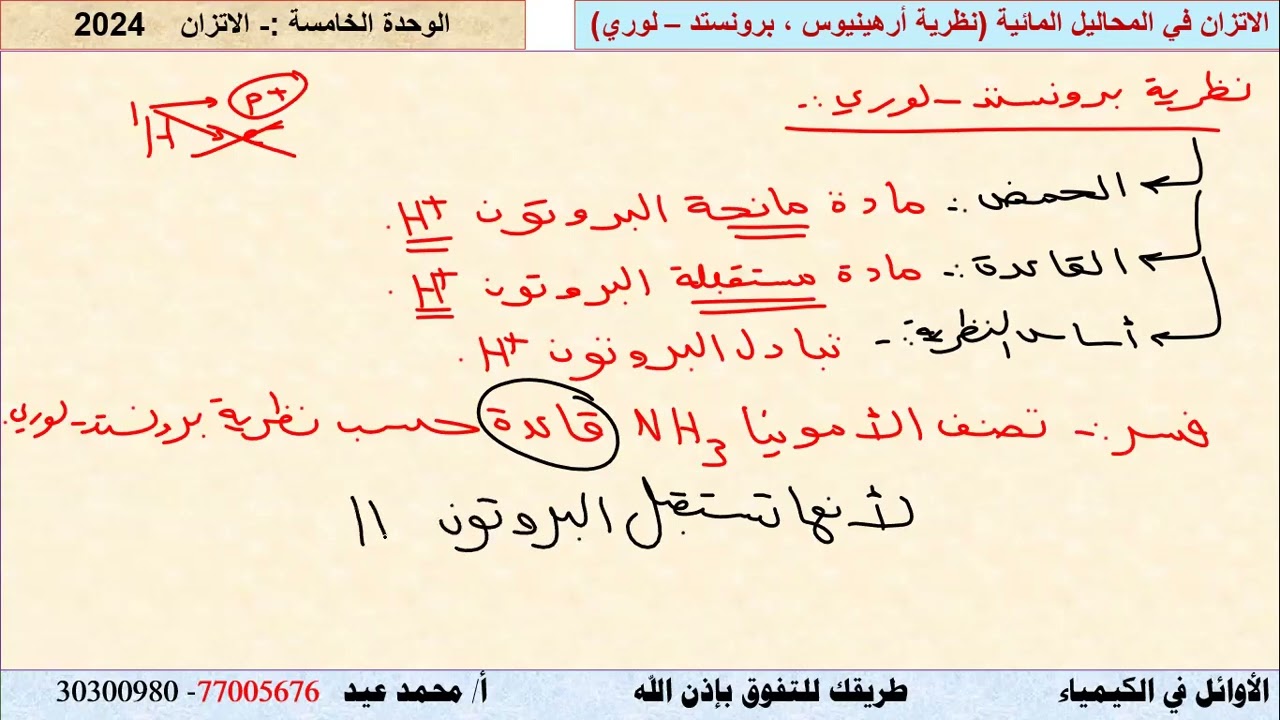 الاتزان في المحاليل المائية (نظرية أرهينيوس ، برونستد – لوري)
الوحدة الخامسة :- الاتزان 2024
نظرية برونستد - لوري :-
1 H p+ e-
الحمض :- مادة مانحة البروتون H+ .
القاعدة :- مادة مستقبلة البروتون H+ .
أساس النظرية :- تبادل البروتون H+ .
فسر :- تصنف الأمونيا NH3 قاعدة حسب نظرية برونستد - لوري .
لأنها تستقبل البروتون
الأوائل في الكيمياء طريقك للتفوق بإذن الله أ/ محمد عيد 77005676 - 30300980